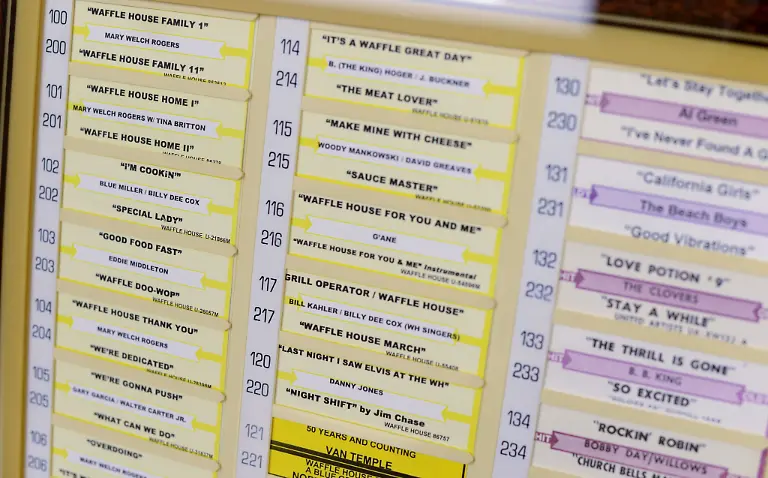 100
200
"WAFFLE HOUSE FAMILY 1"
MARY WELCH ROGERS
"WAFFLE HOUSE FAMILY 11"
101
201
"WAFFLE HOUSE HOME I"
MARY WELCH ROGERS W/ TINA BRITTON
"WAFFLE HOUSE HOME II"
102
202
"I'M COOKIN'"
BLUE MILLER / BILLY DEE COX
"SPECIAL LADY"
WAFFLE HOUSE
103
203
"GOOD FOOD FAST"
EDDIE MIDDLETON
"WAFFLE DOO-WOP"
WAFFLE HOUSE
104
204
"WAFFLE HOUSE THANK YOU"
MARY WELCH ROGERS
"WE'RE DEDICATED"
WAFFLE HOUSE
105
205
"WE'RE GONNA PUSH"
GARY GARCIA / WALTER CARTER JR.
"WHAT CAN WE DO"
WAFFLE HOUSE
106
206
"OVERDOING"
MARY WELCH ROGERS
114
214
"IT'S A WAFFLE GREAT DAY"
B. (THE KING) HOGER / J. BUCKNER
"THE MEAT LOVER"
WAFFLE HOUSE
115
215
"MAKE MINE WITH CHEESE"
WOODY MANKOWSKI / DAVID GREAVES
"SAUCE MASTER"
WAFFLE HOUSE
116
216
"WAFFLE HOUSE FOR YOU AND ME"
G'ANE
"WAFFLE HOUSE FOR YOU & ME" Instrumental
WAFFLE HOUSE
117
217
GRILL OPERATOR / WAFFLE HOUSE"
BILL KAHLER / BILLY DEE COX (WH SINGERS)
"WAFFLE HOUSE MARCH"
WAFFLE HOUSE
120
220
"LAST NIGHT I SAW ELVIS AT THE WH"
DANNY JONES
"NIGHT SHIFT" by Jim Chase
WAFFLE HOUSE 86757
121
221
50 YEARS AND COUNTING
VAN TEMPLE
WAFFLE HOUSE
130
230
"Let's Stay Togethe
Al Green
"I've Never Found A G
131
231
"California Girls"
The Beach Boys
"Good Vibrations"
132
232
"LOVE POTION #9"
THE CLOVERS
"STAY A WHILE"
UNITED ARTISTS
133
233
"THE THRILL IS GONE"
B. B. KING
"SO EXCITED"
134
234
"ROCKIN' ROBIN"
HIT
BOBBY DAY/WILLOWS
"CHURCH BELLS MA